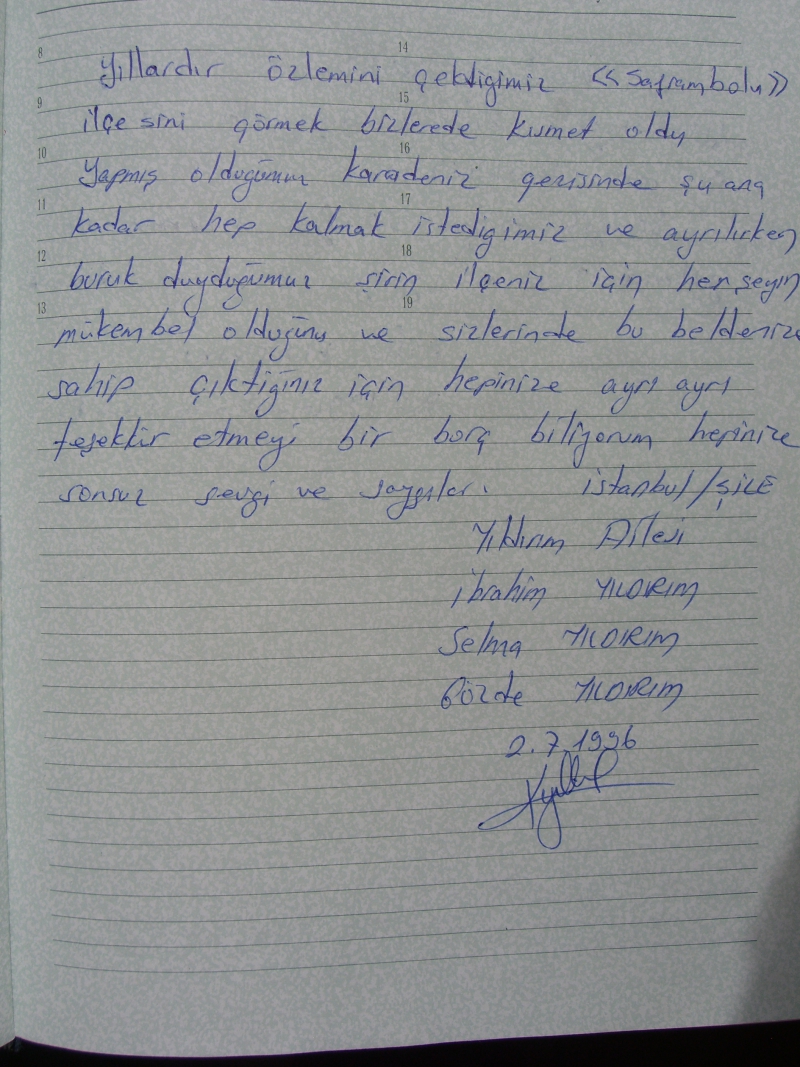 8 14
Yıllardır özlemini çektiğimiz <<Saframbolu>>
9 15
ilçesini görmek bizlerede kısmet oldu
10 16
Yapmış olduğumuz karadeniz gezisinde şu ana
11 17
kadar hep kalmak istediğimiz ve ayrılırken
12 18
buruk duyduğumuz şirin ilçeniz için herşeyin
13 19
mükembel olduğunu ve sizlerinde bu beldenize
sahip çıktığınız için hepinize ayrı ayrı
teşekkür etmeyi bir borç biliyorum hepinize
sonsuz sevgi ve saygılar. istanbul/ŞİLE
Yıldırım Ailesi
ibrahim YILDIRIM
Selma YILDIRIM
Gözde YILDIRIM
2.7.1996